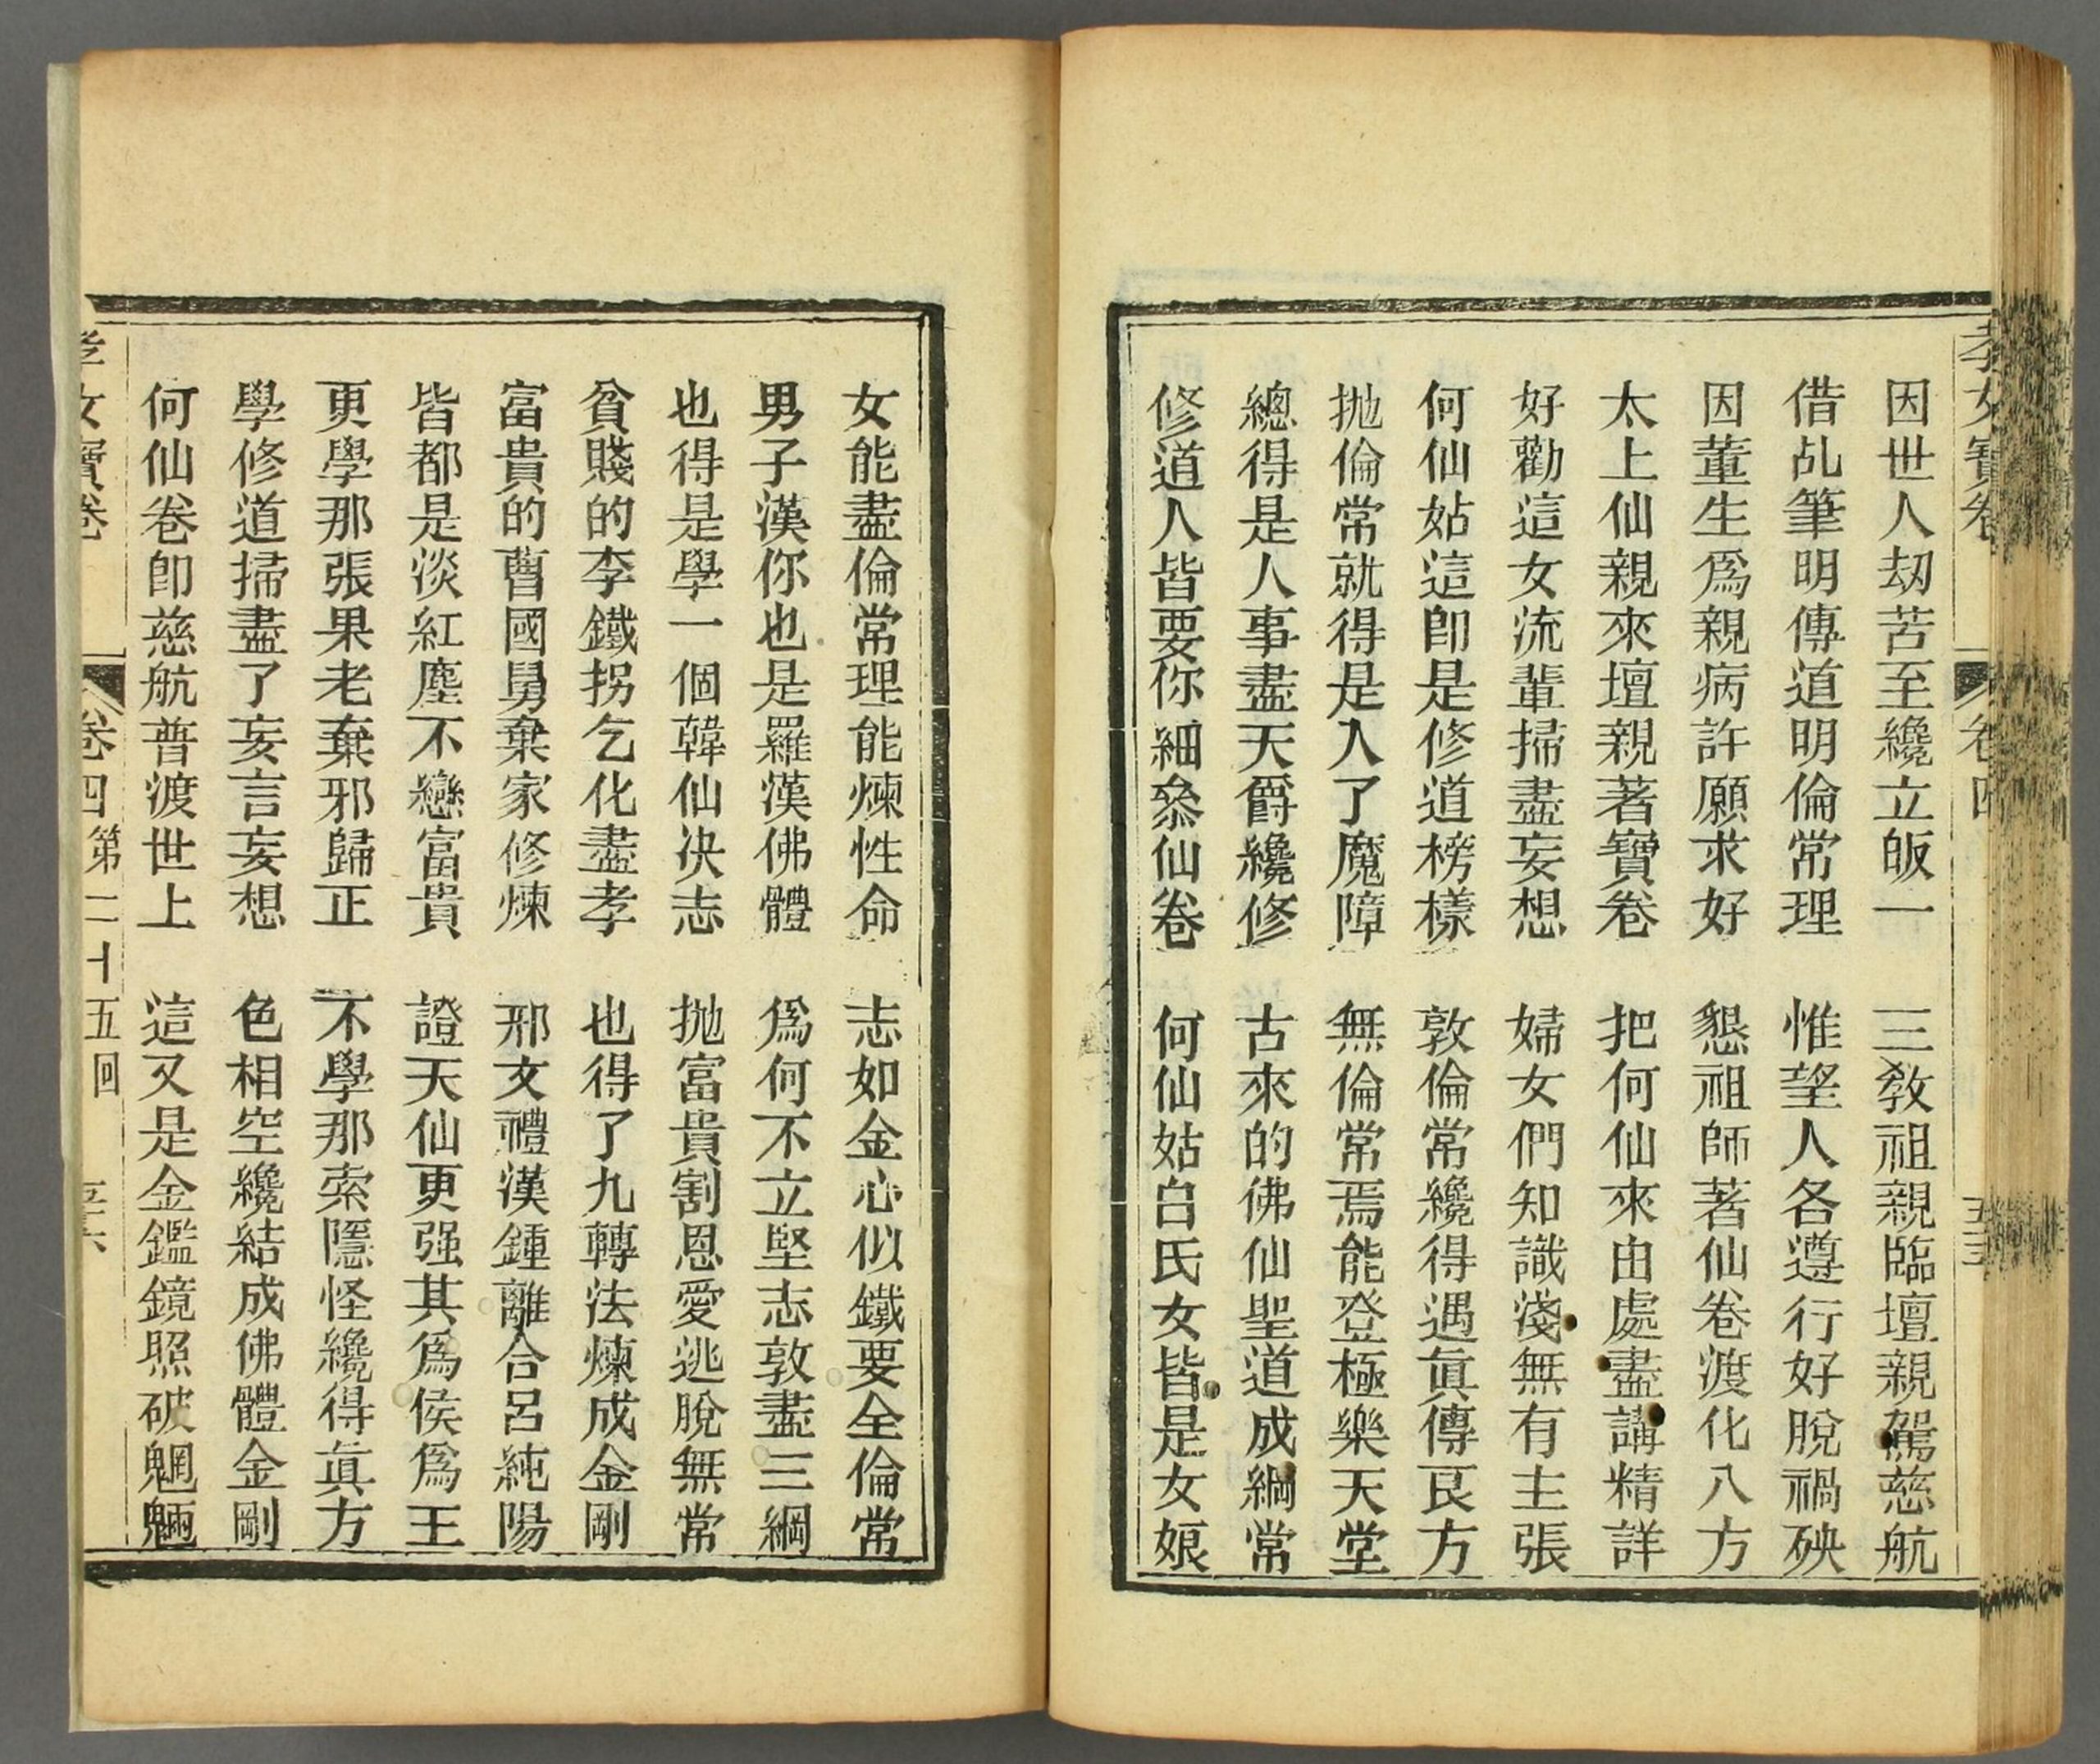 孝女寶卷 卷四 五十五
因世人劫苦至纔立皈一 三教祖親臨壇親駕慈航
借乩筆明傳道明倫常理 惟望人各遵行好脫禍殃
因董生爲親病許願求好 懇祖師著仙卷渡化八方
太上仙親來壇親著寶卷 把何仙來由處盡講精詳
好勸這女流輩掃盡妄想 婦女們知識淺無有主張
何仙姑這卽是修道榜樣 敦倫常纔得遇眞傳良方
拋倫常就得是入了魔障 無倫常焉能登極樂天堂
總得是人事盡天爵纔修 古來的佛仙聖道成綱常
修道人皆要你細叅仙卷 何仙姑白氏女皆是女娘
女能盡倫常理能煉性命 志如金心似鐵要全倫常
男子漢你也是羅漢佛體 爲何不立堅志敦盡三綱
也得是學一個韓仙决志 拋富貴割恩愛逃脫無常
貧賤的李鐵拐乞化盡孝 也得了九轉法煉成金剛
富貴的曹國舅棄家修煉 邪文禮漢鍾離合呂純陽
皆都是淡紅塵不戀富貴 證天仙更强其爲侯爲王
更學那張果老棄邪歸正 不學那索隱怪纔得眞方
學修道掃盡了妄言妄想 色相空纔結成佛體金剛
何仙卷卽慈航普渡世上 這又是金鑑鏡照破魍魎
孝女寶卷 卷四 第二十五回